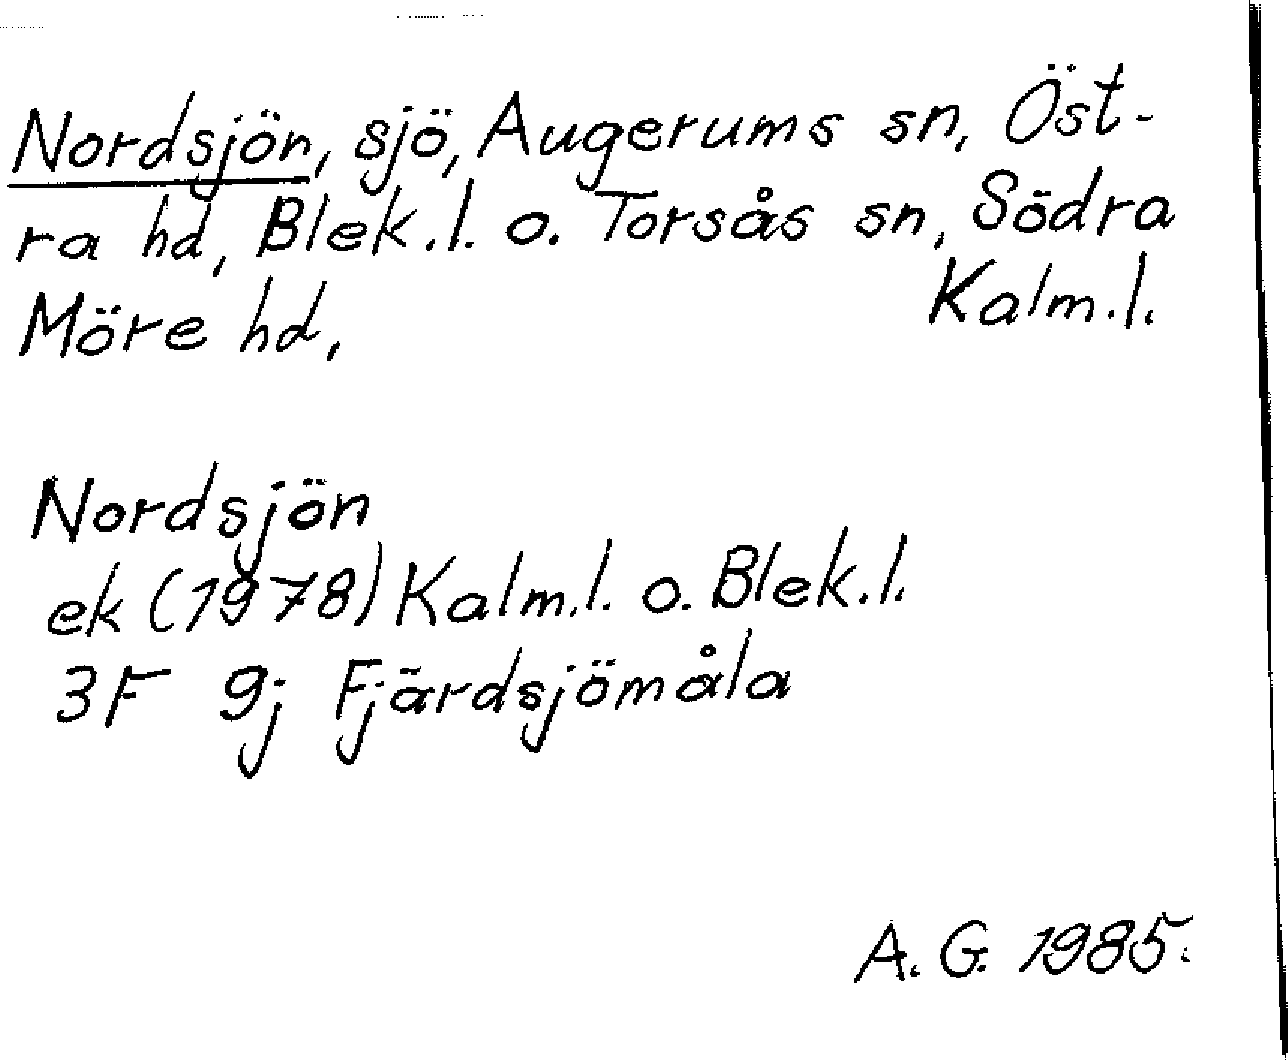 Nordsjön, sjö, Augerums sn, Öst-
ra hd, Blek.l. o. Torsås sn, Södra
Möre hd, Kalm.l.
Nordsjön
ek (1978) Kalm.l. o. Blek.l.
3F 9j Fjärdsjömåla
A.G. 1985.